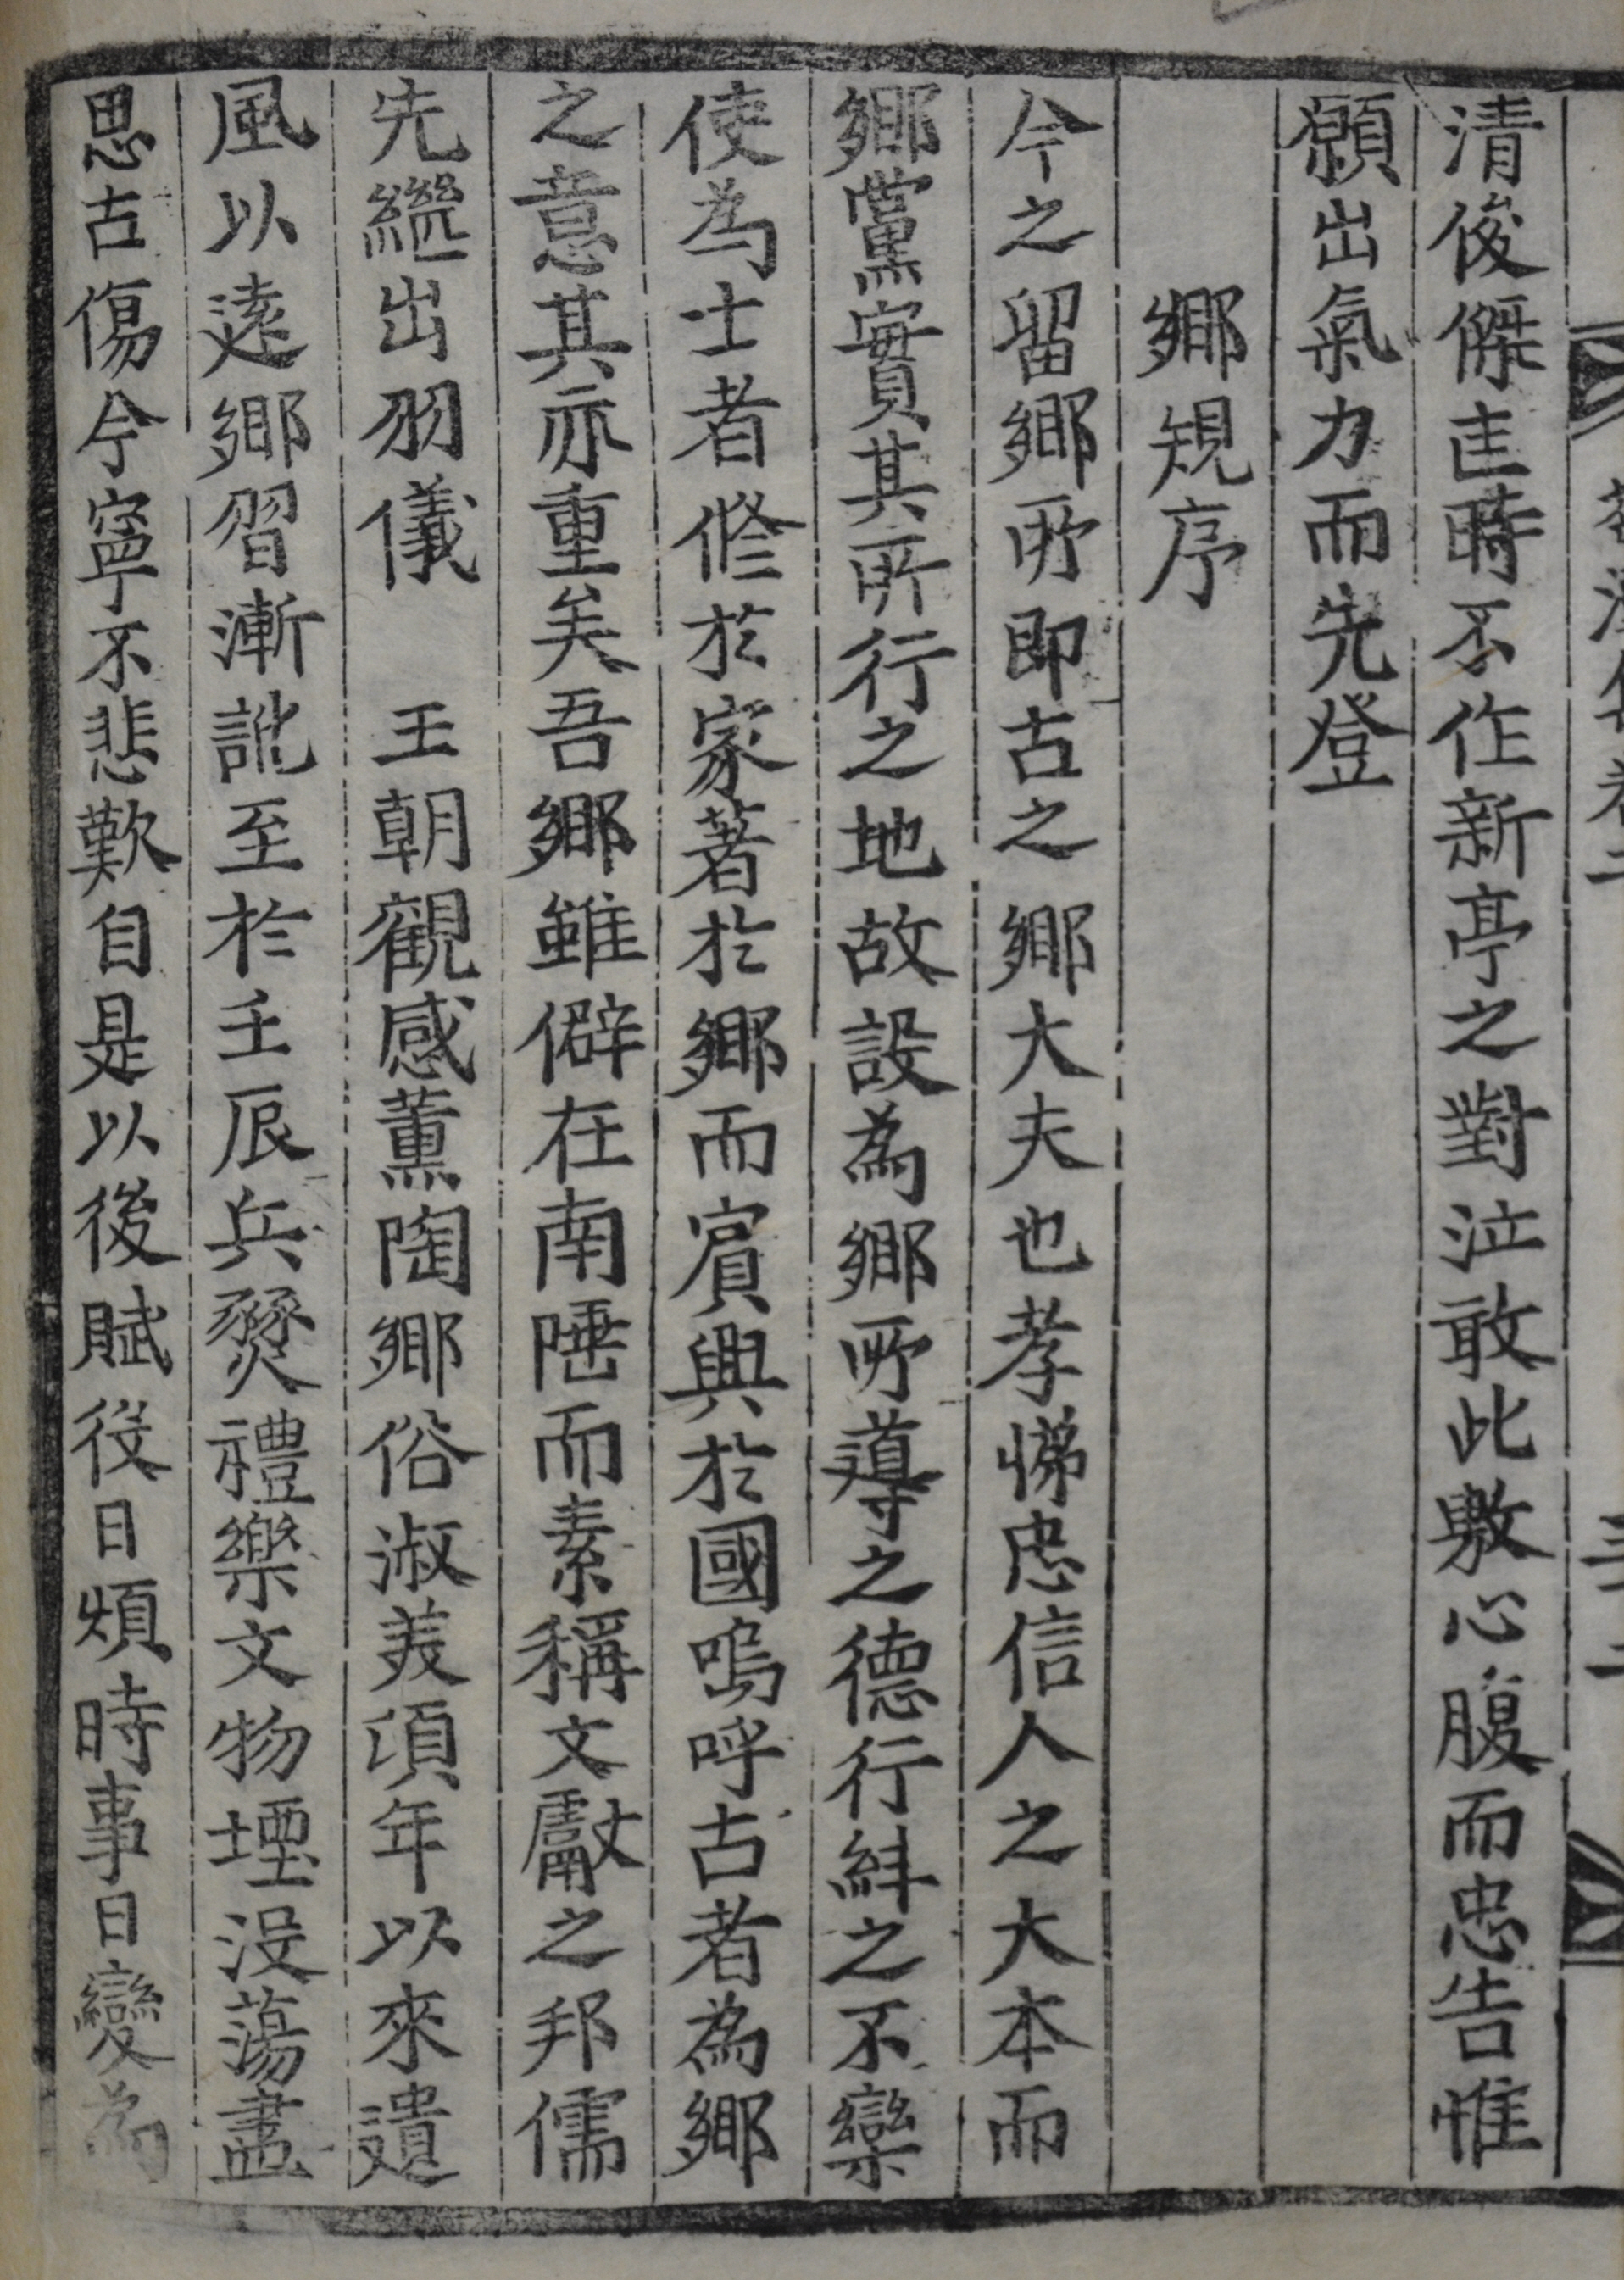 清俊傑匡時不作新亭之對泣敢此敷心腹而忠告惟
願出氣力而先登
鄉規序
今之留鄉所即古之鄉大夫也孝悌忠信人之大本而
鄉黨實其所行之地故設為鄉所導之德行紏之不欒
使為士者修於家著於鄉而賓興於國嗚呼古者為鄉
之意其亦重矣吾鄉雖僻在南陲而素稱文獻之邦儒
先繼出羽儀 王朝觀感薰陶鄉俗淑美頃年以來遺
風以遠鄉習漸訛至於壬辰兵燹禮樂文物堙沒蕩盡
思古傷今寧不悲歎自是以後賦役日煩時事日變為